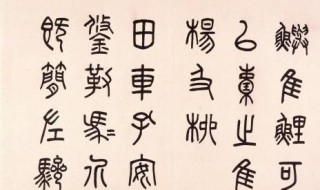 鱮隹鯉可
㠯橐之隹
楊及柳
田車孔安
鋚勒馬＝介
既簡左驂